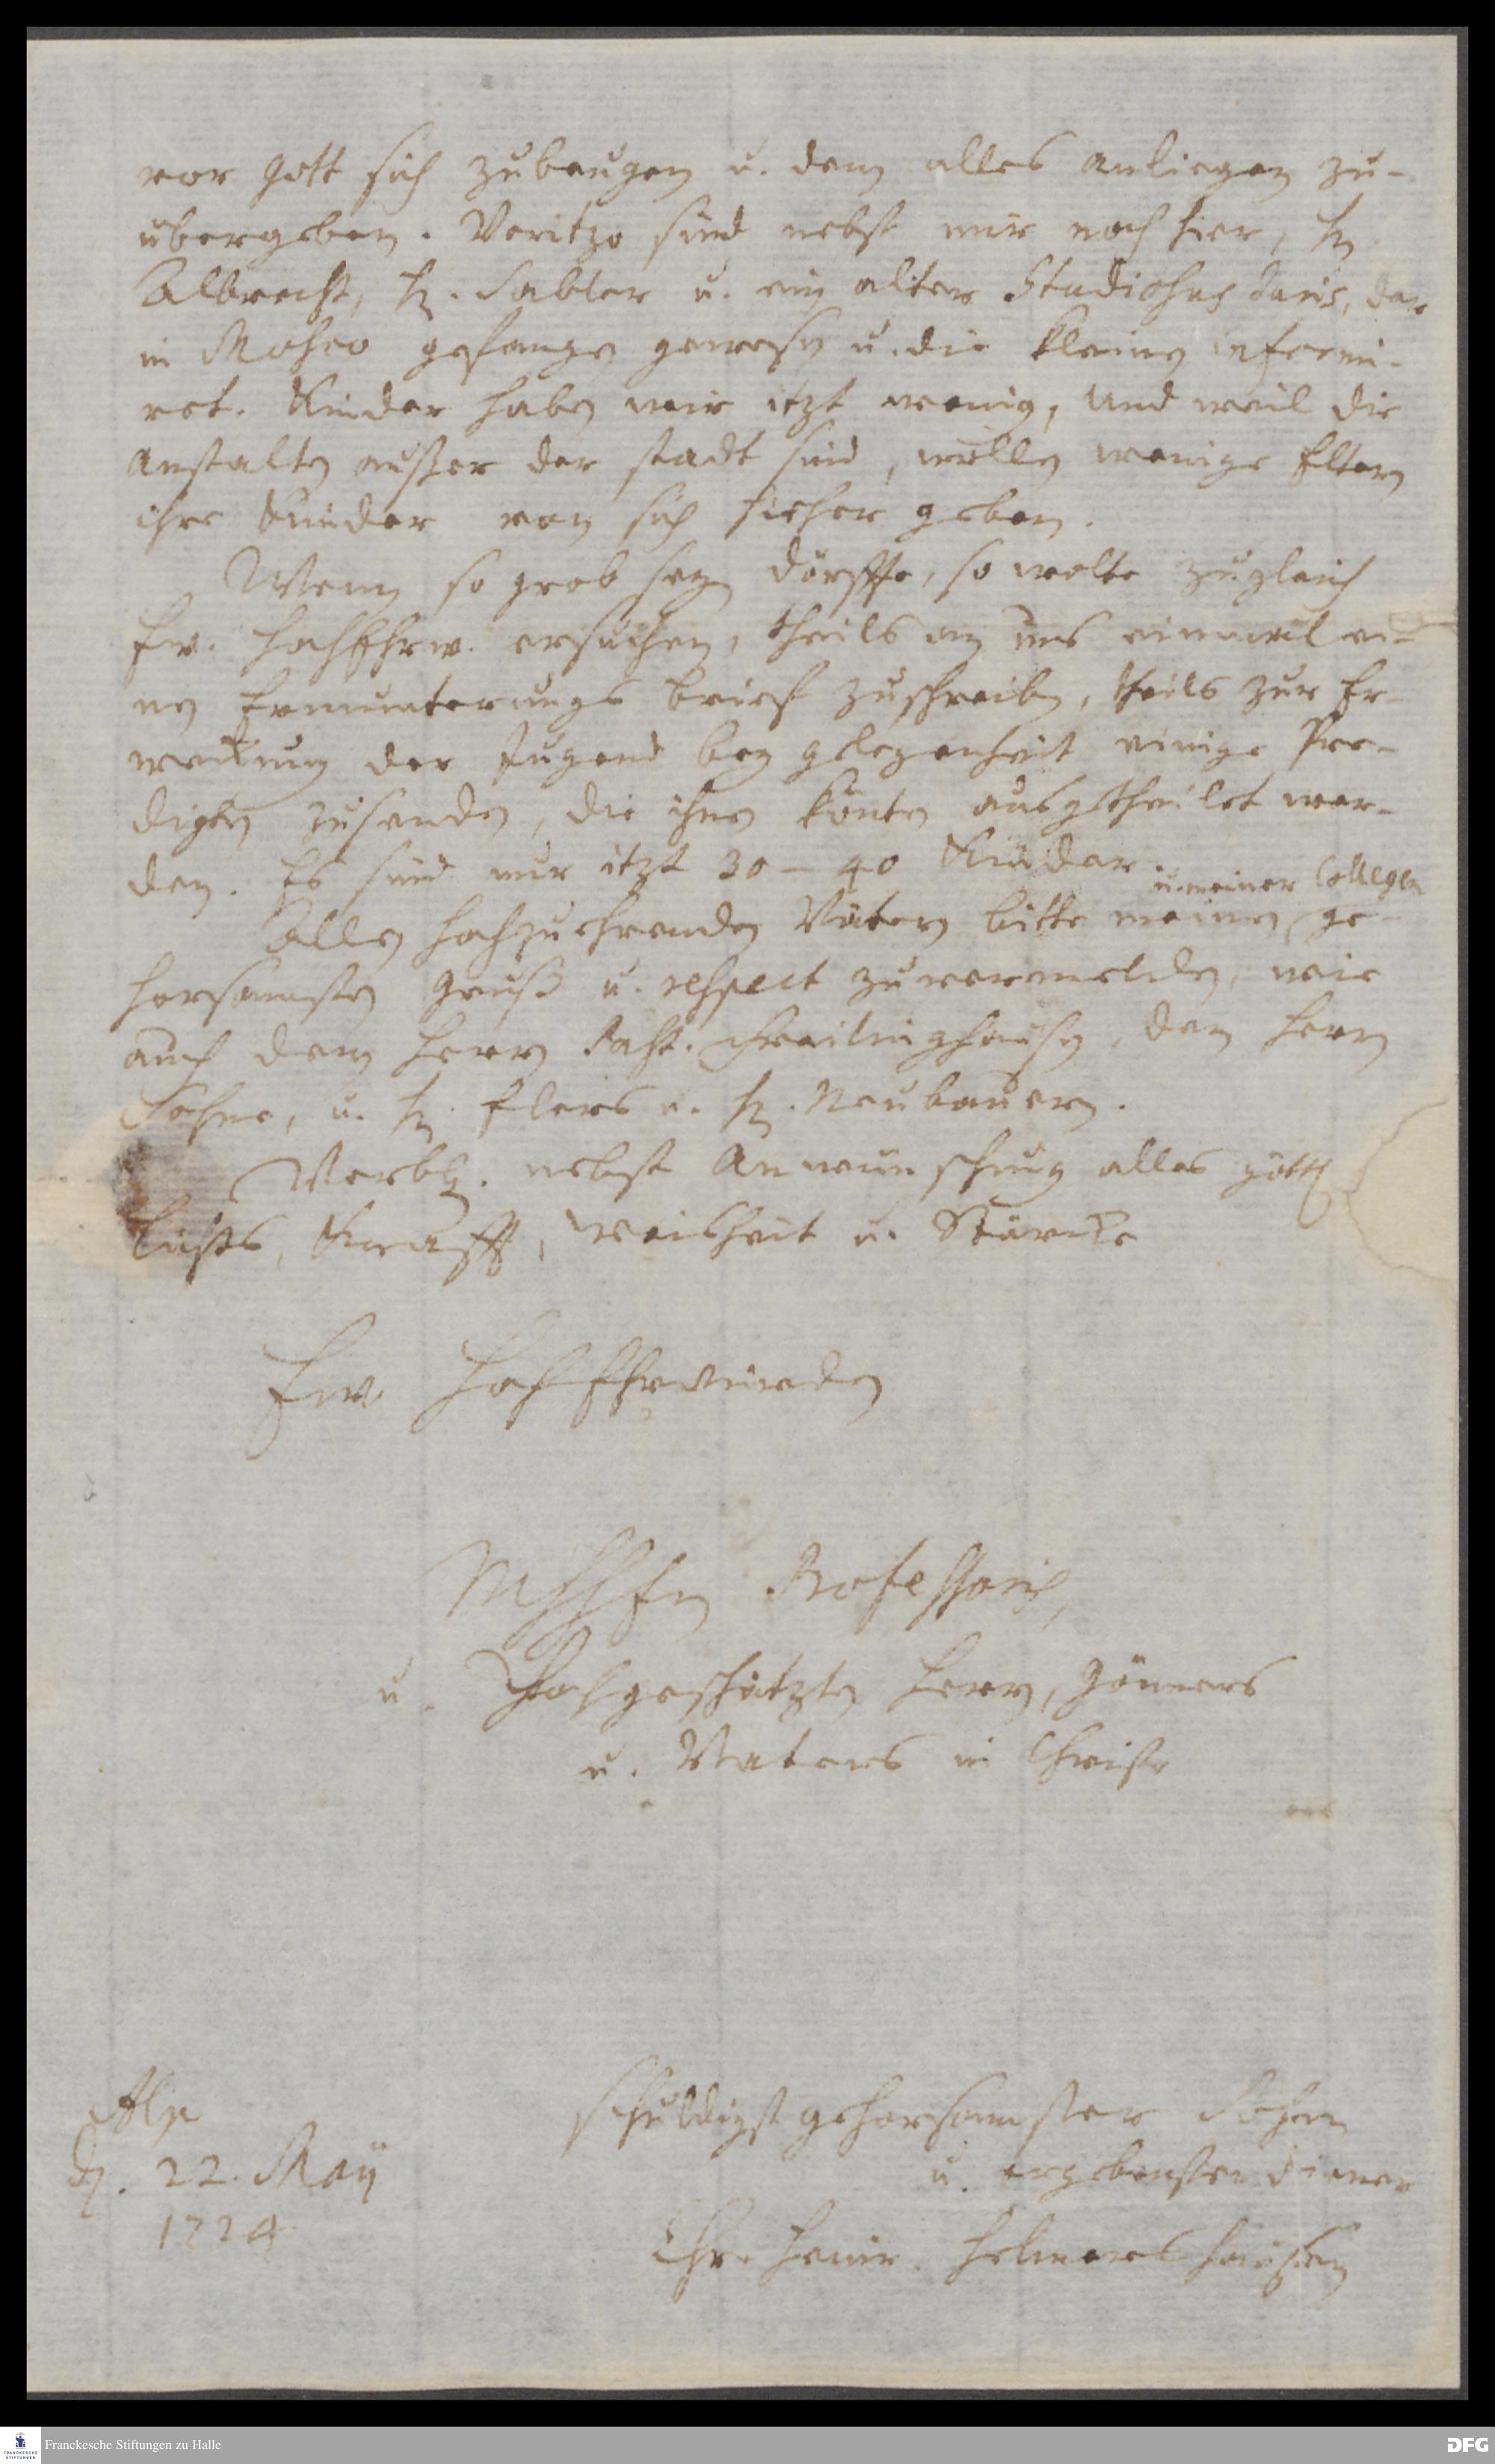 vor Gott sich zubeugen u. dem alles anliegen zu-
übergeben. Voritzo sind nebst mir noch hier, H.
Albrecht, H. Sabler u. ein alter Studiosus Juris, der
in Moscо gefangen gewesen u. die kleinen informi-
ret. Kinder haben wir itzt wenig, und weil die
Anstalten außer der stadt sind, wollen wenige Eltern
ihre Kinder von sich hieher geben.
Wenn so grob seyn dörffte, so wolte zugleich
Ew. HochEhrw. ersuchen, theils an uns einmal ei-
nen Ermunterungs brieff zuschreiben, theils zur Er-
weckung der Jugend bey gelegenheit einige Pre-
digten zusenden, die ihnen könten ausgetheilet wer-
den. Es sind nur itzt 30 – 40 Kinder.
u. meiner Collegen
Allen hochzuehrenden Vätern bitte meinen ge-
horsamsten gruß u. respect zuvermelden, wie
auch dem Herrn Past. Freilinghausen, dem Herrn
Sohne, u. H. Elers u. H. Neubauern.
Verbl. nebst Anwünschung alles göttl.
Lichts, Krafft, Weisheit u. Stärcke
Ew. HochEhrwürden
MHHEn Professoris,
u. Hochgeschätzten Herrn, Gönners
u. Vaters in Christo
Alp
d. 22. Maij
1724
schuldigst gehorsamster Sohn
u. ergebenster diener
Chr. Henr. Helmershausen
Franckesche Stiftungen zu Halle
FRANCKESCHE
STIFTUNGEN
DFG